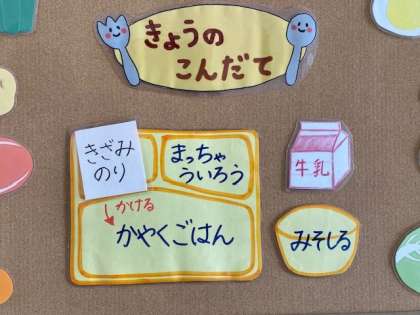 きょうの
こんだて
きざみ
のり
まっちゃ
ういろう
かける
かやくごはん
牛乳
みそしる